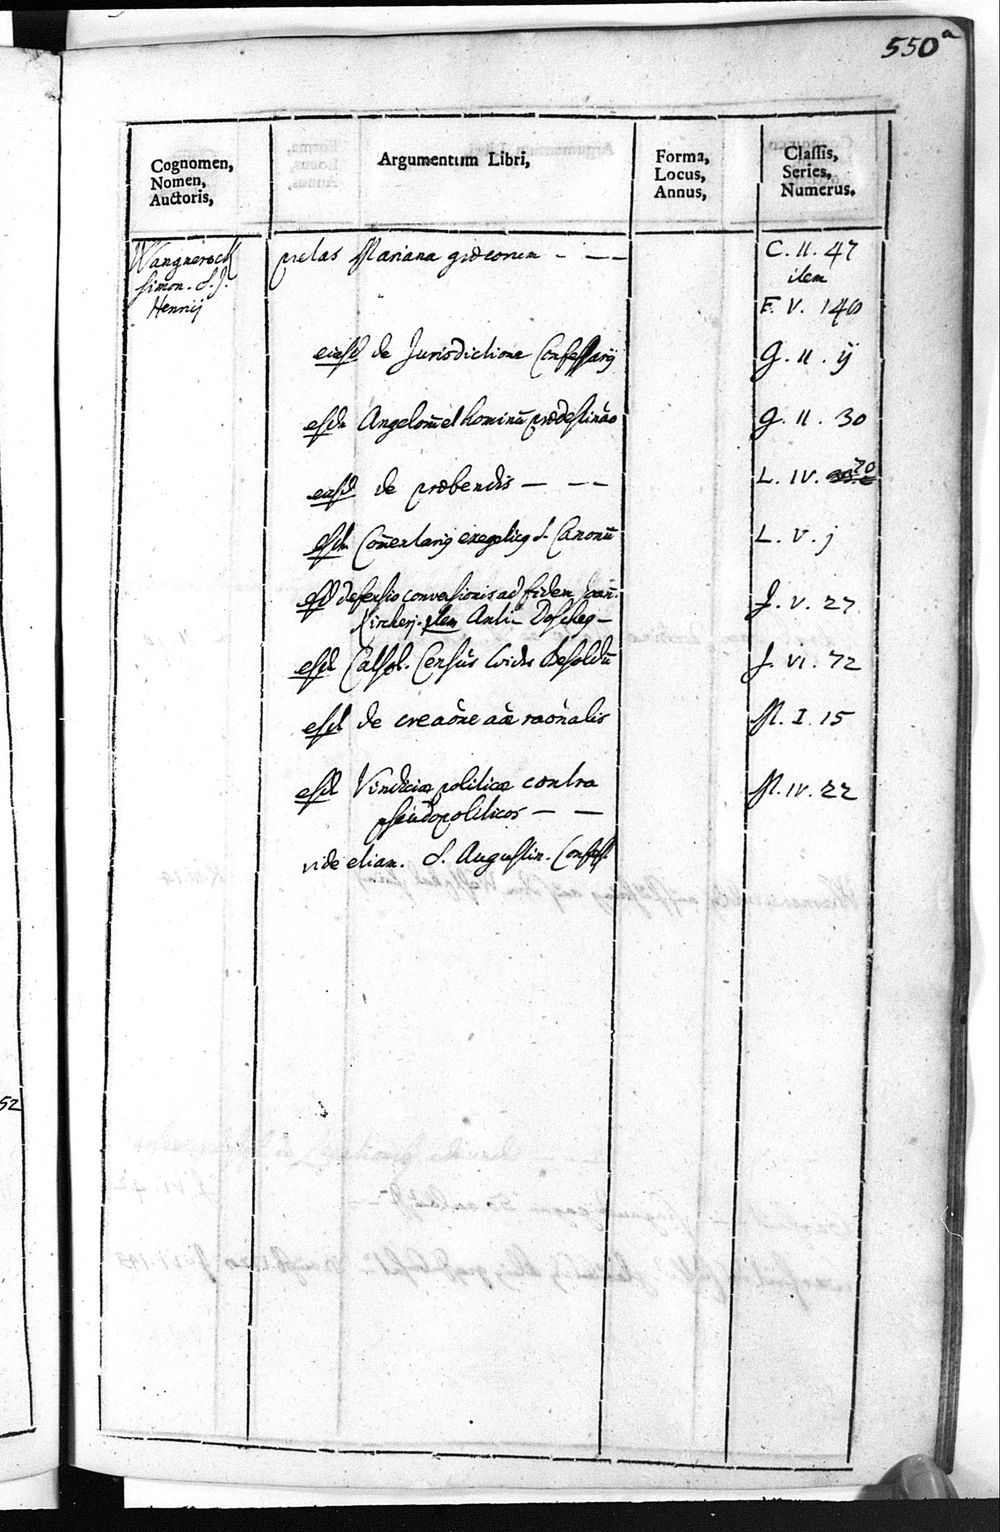 550a
Cognomen,
Nomen,
Auctoris,
Argumentum Libri,
Forma,
Locus,
Annus,
Classis,
Series,
Numerus.
Wangnereck
Simon. S. J.
Henrrij
pietas Mariana græcorum - - -
C. II. 47
item
F. V. 140
eiusd de Jurisdictione Confessarij
G. II. ij
esdu Angelorū et hominū prædestinaō
G. II. 30
eiusd de præbendis - - -
L. IV. 70
esdu Com̄entarij exegeticq S. Canonū
L. V. j
esd defensio conversionis ad fidem
Kircherj. item Anti-
J. V. 27
esd Cathol. Censūs Besoldū
J. VI. 72
esd de creaōne aāe raōnalis
M. I. 15
esd Vindiciæ politicæ contra
pseudopoliticos - -
M. IV. 22
vide etiam. S. Augustin. Confess.
52